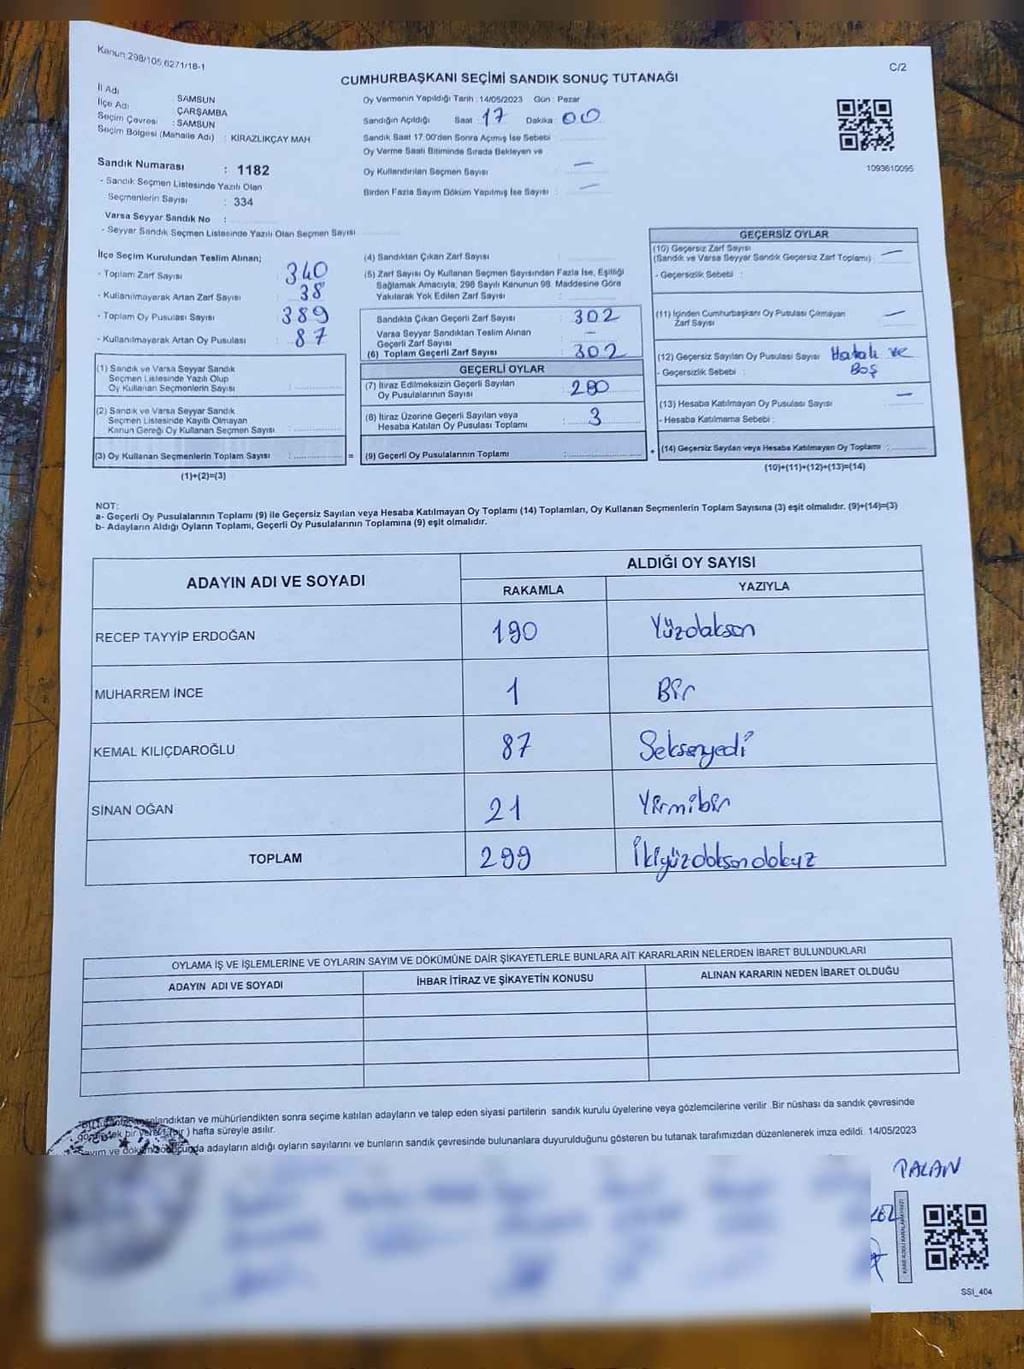 Kanun:298/105,6271/18-1
C/2
CUMHURBAŞKANI SEÇİMİ SANDIK SONUÇ TUTANAĞI
İl Adı : SAMSUN
İlçe Adı : ÇARŞAMBA
Seçim Çevresi : SAMSUN
Seçim Bölgesi (Mahalle Adı) : KİRAZLIKÇAY MAH
Sandık Numarası : 1182
- Sandık Seçmen Listesinde Yazılı Olan
Seçmenlerin Sayısı : 334
Varsa Seyyar Sandık No :
- Seyyar Sandık Seçmen Listesinde Yazılı Olan Seçmen Sayısı
Oy Vermenin Yapıldığı Tarih : 14/05/2023 Gün : Pazar
Sandığın Açıldığı Saat : 17 Dakika : 00
Sandık Saat 17.00'den Sonra Açılmış İse Sebebi
Oy Verme Saati Bitiminde Sırada Bekleyen ve
Oy Kullandırılan Seçmen Sayısı : —
Birden Fazla Sayım Döküm Yapılmış İse Sayısı : —
1093610095
İlçe Seçim Kurulundan Teslim Alınan;
- Toplam Zarf Sayısı : 340
- Kullanılmayarak Artan Zarf Sayısı : 38
- Toplam Oy Pusulası Sayısı : 389
- Kullanılmayarak Artan Oy Pusulası : 87
(1) Sandık ve Varsa Seyyar Sandık
Seçmen Listesinde Yazılı Olup
Oy Kullanan Seçmenlerin Sayısı :
(2) Sandık ve Varsa Seyyar Sandık
Seçmen Listesinde Kayıtlı Olmayan
Kanun Gereği Oy Kullanan Seçmen Sayısı :
(3) Oy Kullanan Seçmenlerin Toplam Sayısı : =
(1)+(2)=(3)
(4) Sandıktan Çıkan Zarf Sayısı :
(5) Zarf Sayısı Oy Kullanan Seçmen Sayısından Fazla İse, Eşitliği
Sağlamak Amacıyla, 298 Sayılı Kanunun 98. Maddesine Göre
Yakılarak Yok Edilen Zarf Sayısı :
Sandıkta Çıkan Geçerli Zarf Sayısı : 302
Varsa Seyyar Sandıktan Teslim Alınan
Geçerli Zarf Sayısı : —
(6) Toplam Geçerli Zarf Sayısı : 302
GEÇERLİ OYLAR
(7) İtiraz Edilmeksizin Geçerli Sayılan
Oy Pusulalarının Sayısı : 280
(8) İtiraz Üzerine Geçerli Sayılan veya
Hesaba Katılan Oy Pusulası Toplamı : 3
(9) Geçerli Oy Pusulalarının Toplamı : +
GEÇERSİZ OYLAR
(10) Geçersiz Zarf Sayısı
(Sandık ve Varsa Seyyar Sandık Geçersiz Zarf Toplamı) : —
- Geçersizlik Sebebi :
(11) İçinden Cumhurbaşkanı Oy Pusulası Çıkmayan
Zarf Sayısı : —
(12) Geçersiz Sayılan Oy Pusulası Sayısı : Hatalı ve
- Geçersizlik Sebebi : Boş
(13) Hesaba Katılmayan Oy Pusulası Sayısı : —
- Hesaba Katılmama Sebebi :
(14) Geçersiz Sayılan veya Hesaba Katılmayan Oy Toplamı :
(10)+(11)+(12)+(13)=(14)
NOT:
a- Geçerli Oy Pusulalarının Toplamı (9) ile Geçersiz Sayılan veya Hesaba Katılmayan Oy Toplamı (14) Toplamları, Oy Kullanan Seçmenlerin Toplam Sayısına (3) eşit olmalıdır. (9)+(14)=(3)
b- Adayların Aldığı Oyların Toplamı, Geçerli Oy Pusulalarının Toplamına (9) eşit olmalıdır.
ADAYIN ADI VE SOYADI
ALDIĞI OY SAYISI
RAKAMLA YAZIYLA
RECEP TAYYİP ERDOĞAN 190 Yüzdoksan
MUHARREM İNCE 1 Bir
KEMAL KILIÇDAROĞLU 87 Seksenyedi
SİNAN OĞAN 21 Yirmibir
TOPLAM 299 İkiyüzdoksandokuz
OYLAMA İŞ VE İŞLEMLERİNE VE OYLARIN SAYIM VE DÖKÜMÜNE DAİR ŞİKAYETLERLE BUNLARA AİT KARARLARIN NELERDEN İBARET BULUNDUKLARI
ADAYIN ADI VE SOYADI İHBAR İTİRAZ VE ŞİKAYETİN KONUSU ALINAN KARARIN NEDEN İBARET OLDUĞU
ve mühürlendikten sonra seçime katılan adayların ve talep eden siyasi partilerin sandık kurulu üyelerine veya gözlemcilerine verilir .Bir nüshası da sandık çevresinde
) hafta süreyle asılır.
adayların aldığı oyların sayılarını ve bunların sandık çevresinde bulunanlara duyurulduğunu gösteren bu tutanak tarafımızdan düzenlenerek imza edildi. 14/05/2023
PALAN
SSI_404